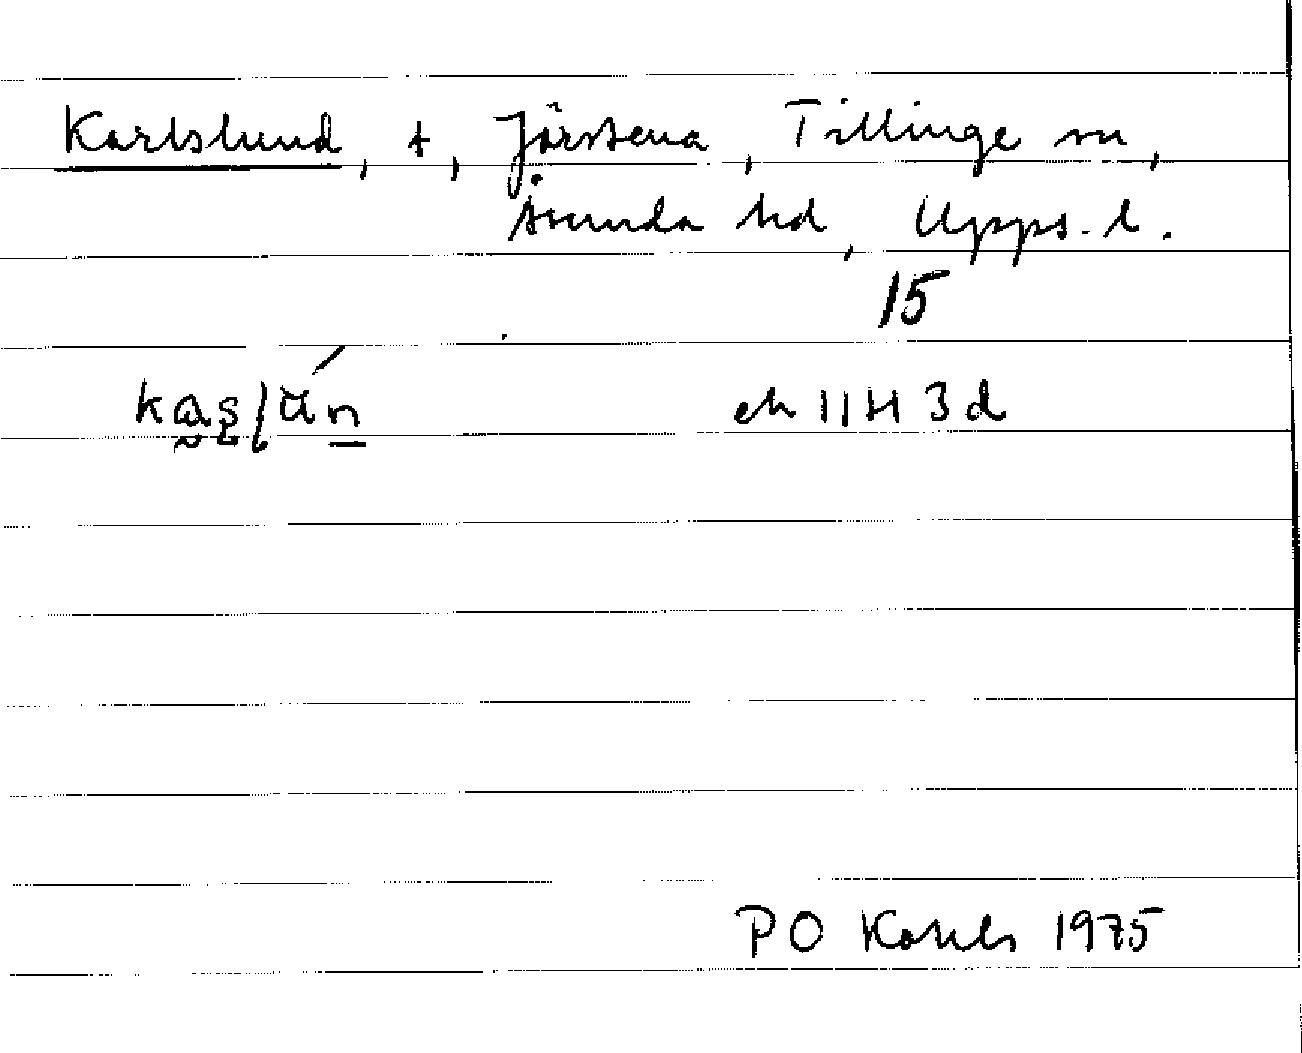 Karlslund, t, Järstena, Tillinge sn,
Åsunda hd, Upps. l.
15
ek 11H 3d
PO 1975